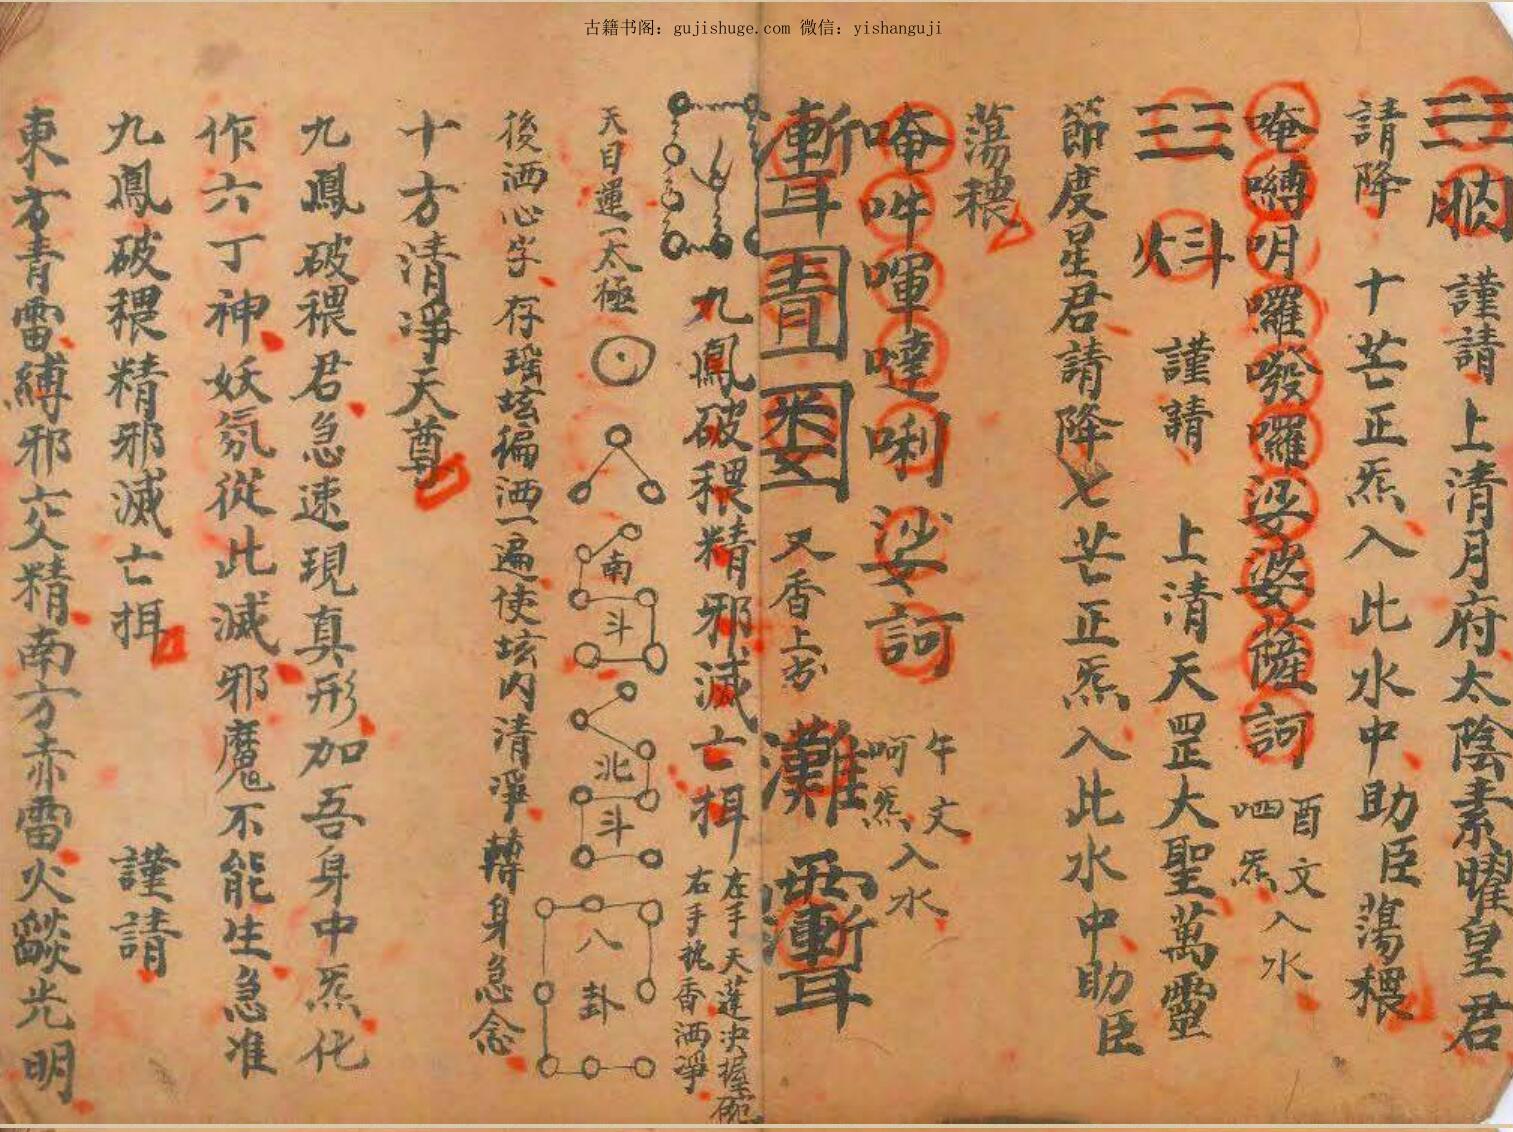 古籍书阁：gujishuge.com 微信：yishanguji
謹請上清月府太陰素曜皇君
請降十芒正炁入此水中助臣蕩穢
唵嚩囉囉婆婆薩訶
酉文
炁入水
謹請上清天罡大聖萬靈
節度星君請降七芒正炁入此水中助臣
蕩穢
唵吽㖶噠唎娑訶
午文
呵炁入水
又香上书
灘
九鳳破穢精邪滅亡揖
左手天蓮決握碗
右手執香洒淨
天目運一太極
南斗
北斗
八卦
後洒心字存瑶坛徧洒一遍使坛内清淨轉身急念
十方清淨天尊
九鳳破穢君急速現真形加吾身中炁化
作六丁神妖氛從此滅邪魔不能生急准
九鳳破穢精邪滅亡揖謹請
東方青雷縛邪六文精南方赤雷火燄光明